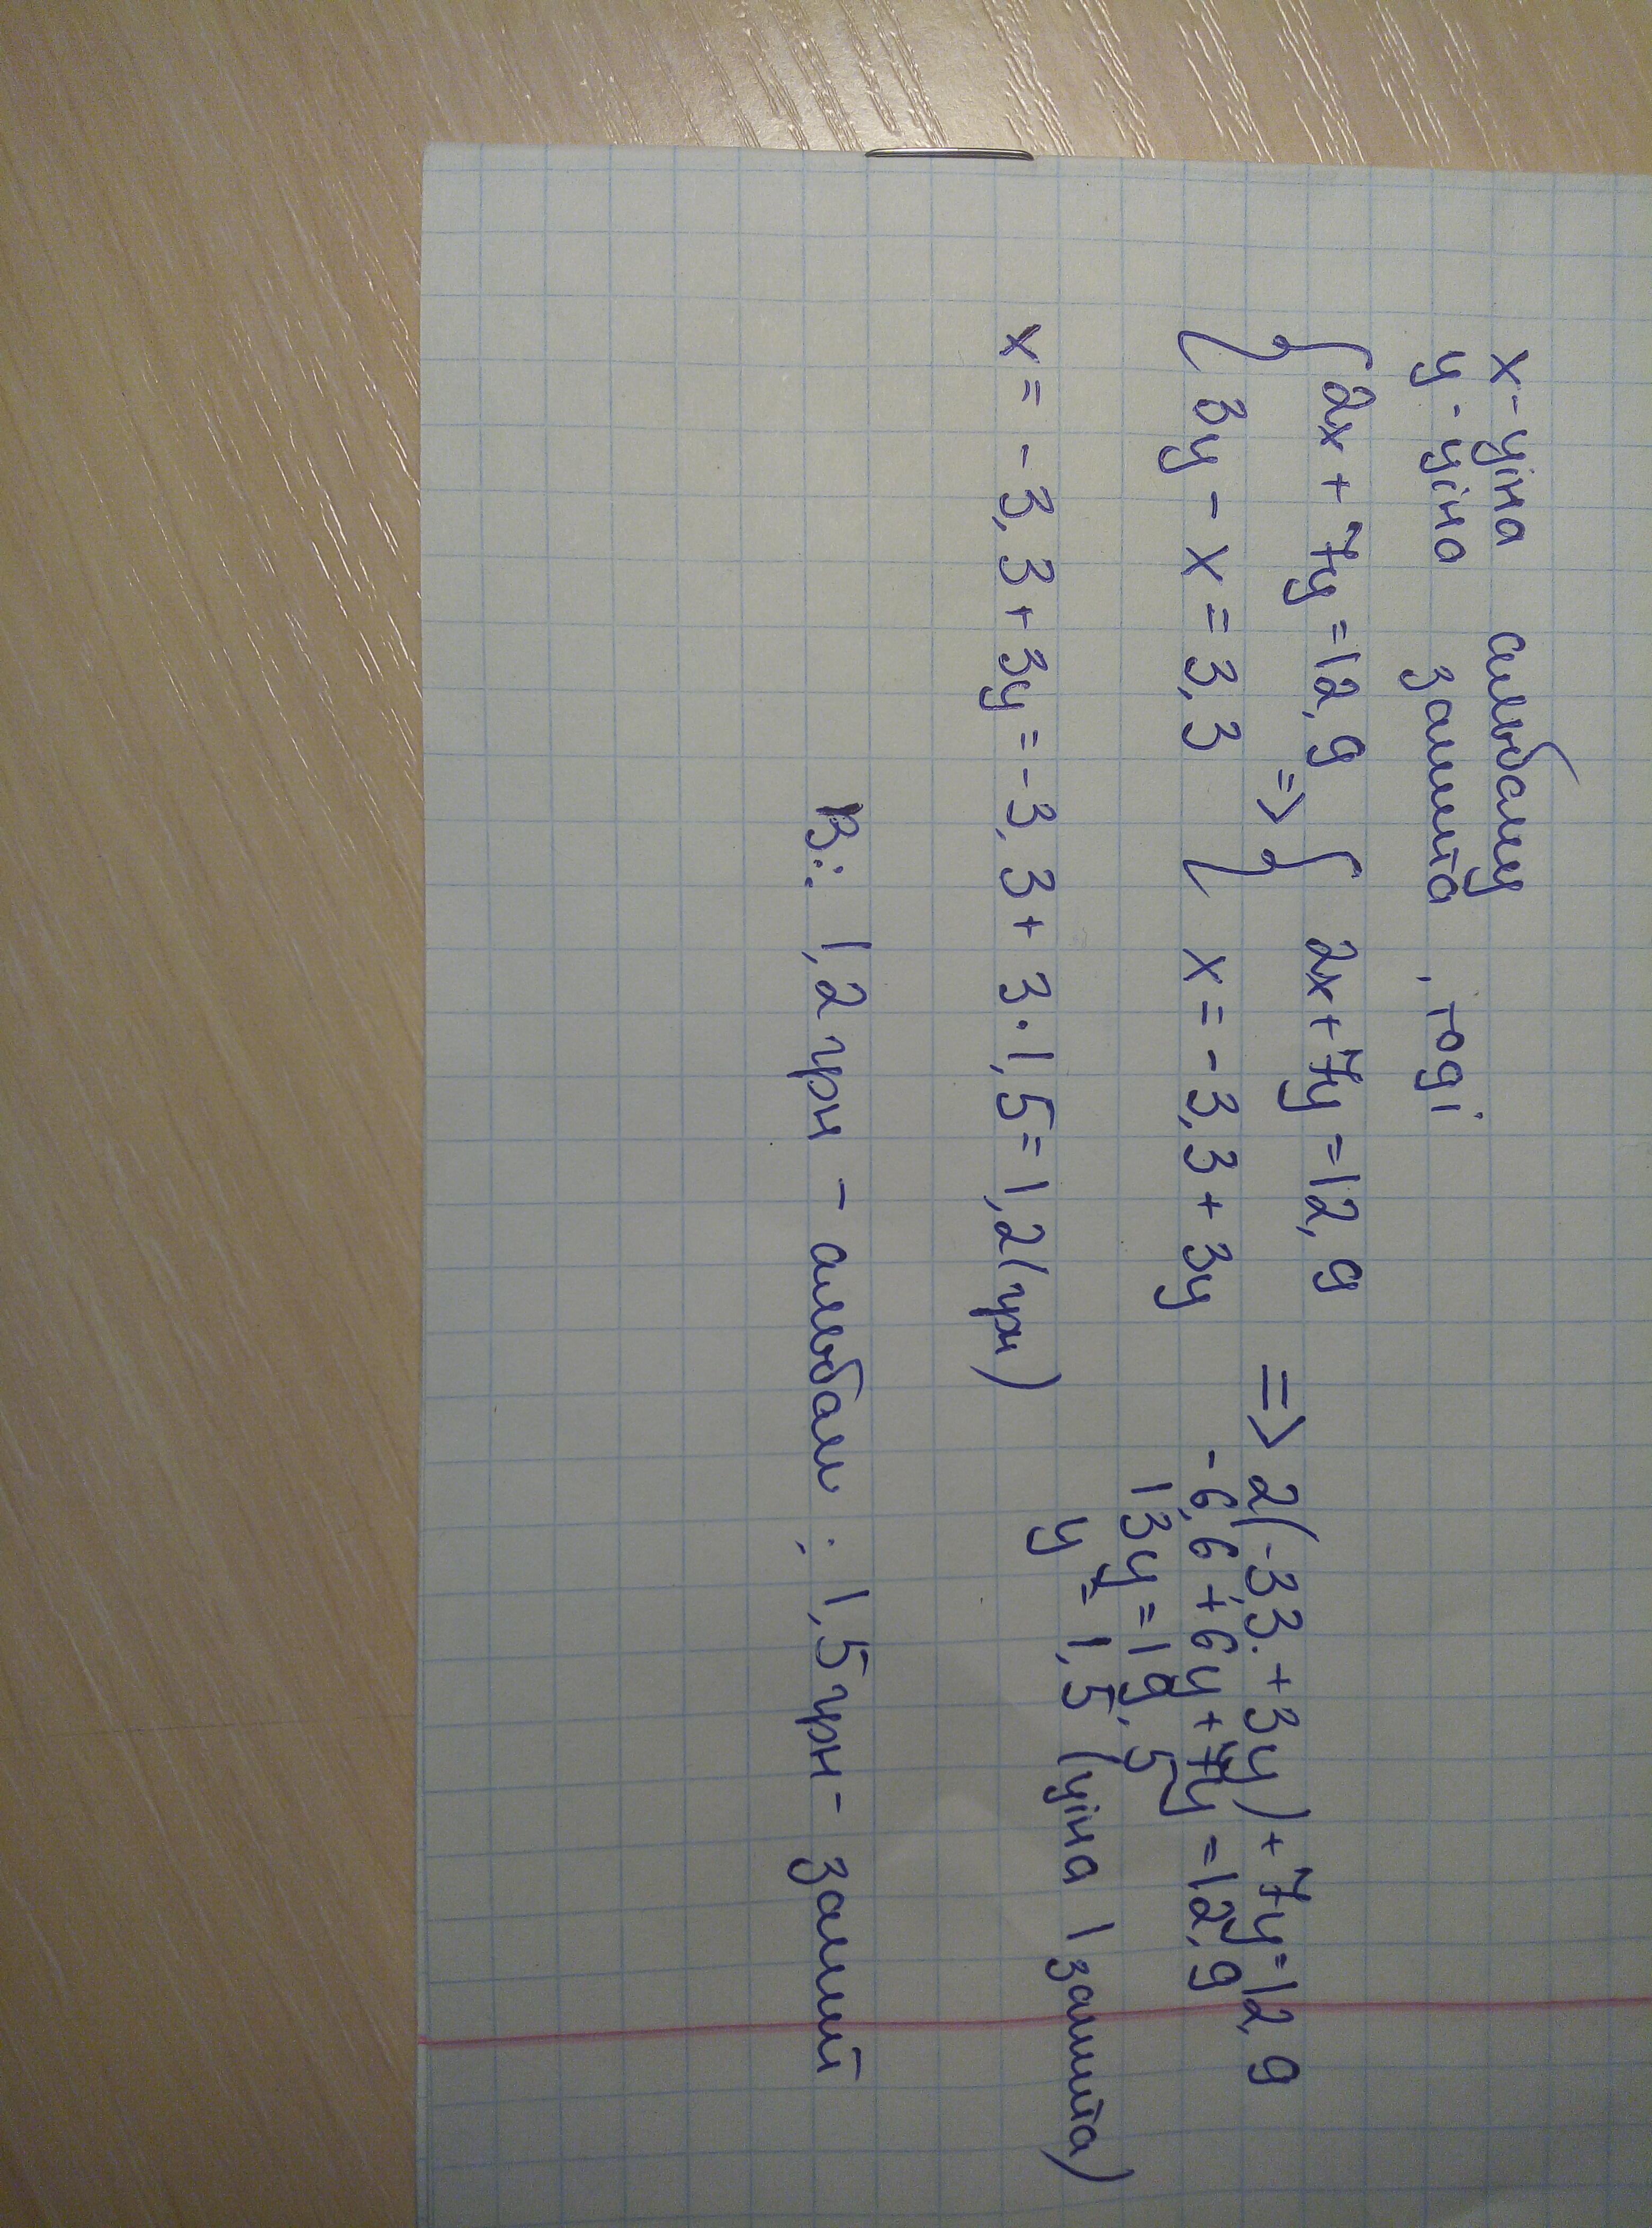 x - ціна альбому
y - ціна зошита, тоді
{ 2x + 7y = 12,9 => { 2x + 7y = 12,9 => 2(-3,3 + 3y) + 7y = 12,9
3y - x = 3,3 x = -3,3 + 3y -6,6 + 6y + 7y = 12,9
13y = 19,5
y = 1,5 (ціна 1 зошита)
x = -3,3 + 3y = -3,3 + 3·1,5 = 1,2 (грн)
В:: 1,2 грн - альбом; 1,5 грн - зошит